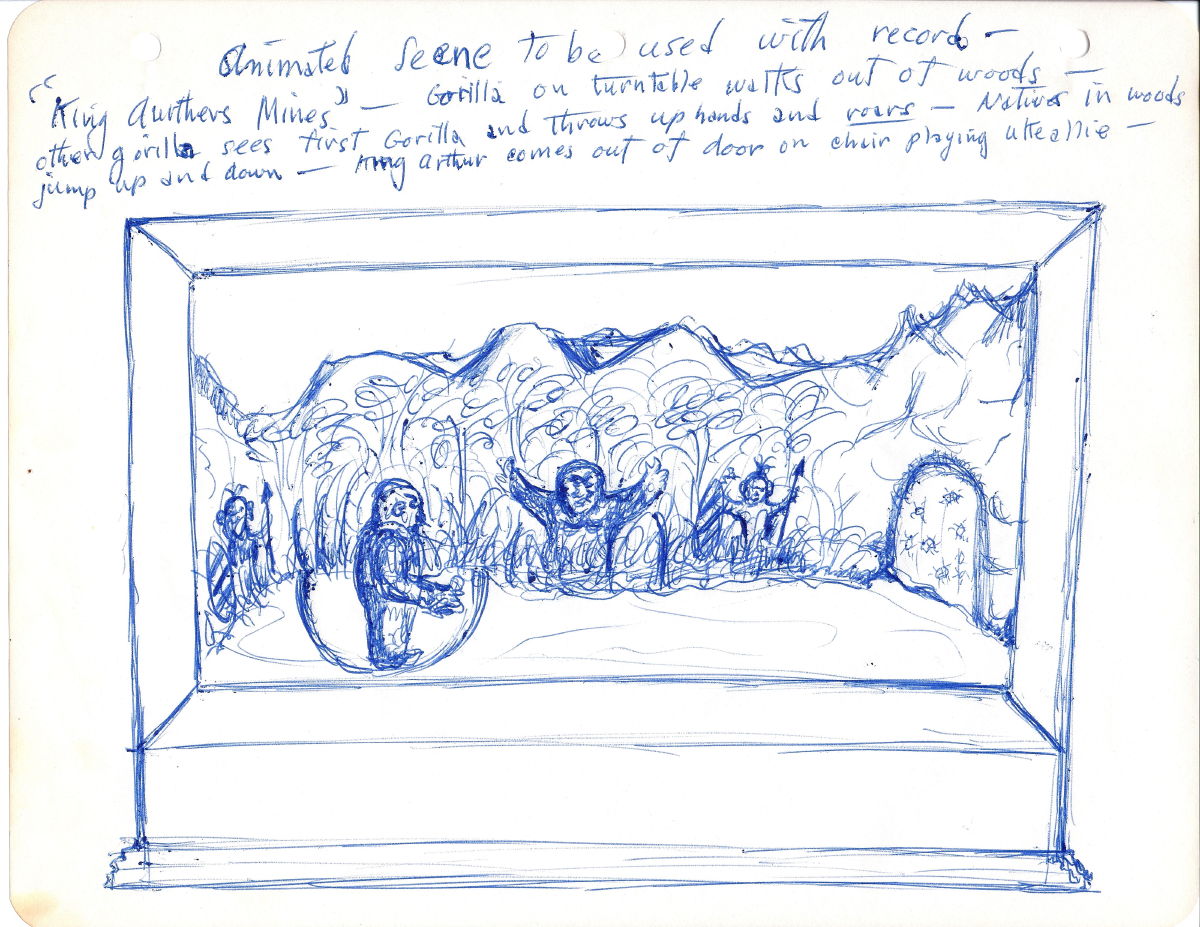 Animated Scene to be used with record —
"King Aurthers Mines" — Gorilla on turntable walks out of woods —
other gorilla sees first Gorilla and throws up hands and roars — Natives in woods
jump up and down — King Arthur comes out of door on chair playing ukeallie —